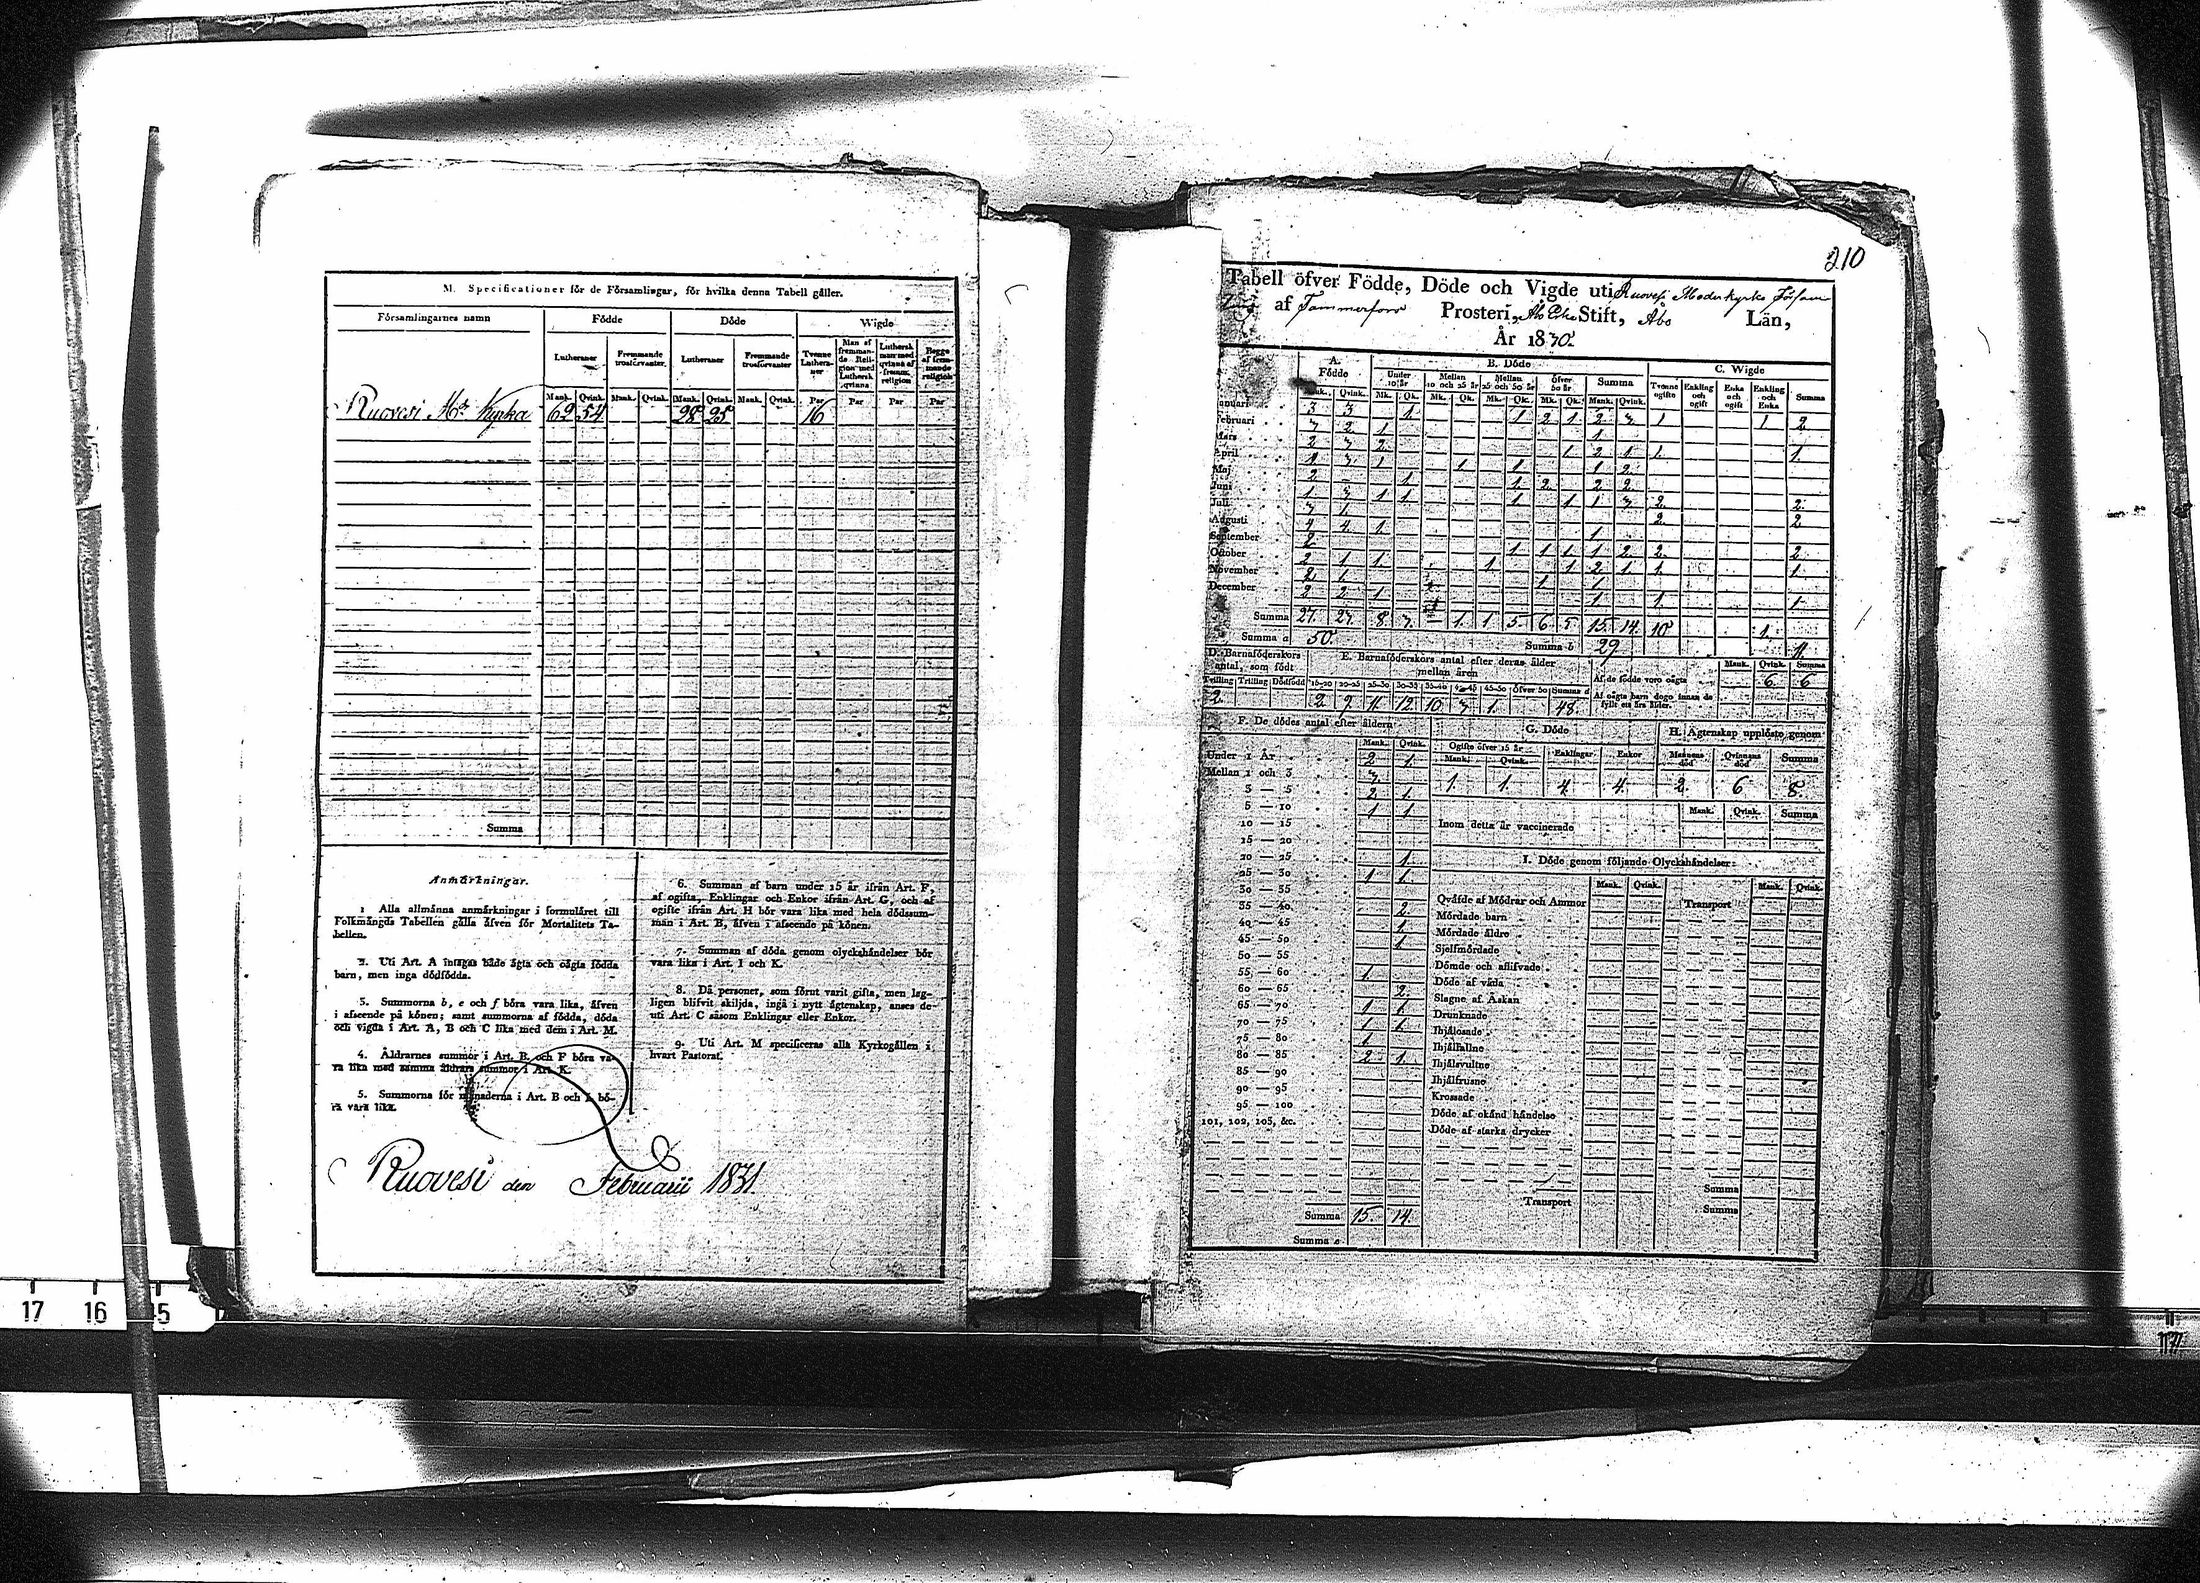 M. Specificationer för de Församlingar, för hvilka denna Tabell gäller.
Församlingarnes namn
Födde
Döde
Wigde
Lutheraner
Fremmande trosförvanter.
Lutheraner
Fremmande trosförvanter
Tvenne Lutheraner
Man af fremmande Religion med Luthersk qvinna
Luthersk man med qvinna af fremm. religion
Begge af fremmande religion
Mank. Qvink. Mank. Qvink. Mank. Qvink. Mank. Qvink. Par Par Par Par
Ruovesi Mr Kyrka 62 54 28 25 16
Summa
Anmärkningar.
1 Alla allmänna anmärkningar i formuläret till
Folkmängds Tabellen gälla äfven för Mortalitets Ta-
bellen.
2. Uti Art. A intagas både ägta och oägta födda
barn, men inga dödfödda.
3. Summorna b, e och f böra vara lika, äfven
i afseende på könen; samt summorna af födda, döda
och vigda i Art. A, B och C lika med dem i Art. M.
4. Åldrarnes summor i Art. B. och F böra va-
ra lika med samma åldrars summor i Art. K.
5. Summorna för månaderna i Art. B och bö-
ra vara lika.
6. Summan af barn under 15 år ifrån Art. F,
af ogifta, Enklingar och Enkor ifrån Art. G, och af
ogifte ifrån Art. H bör vara lika med hela dödssum-
man i Art. B, äfven i afseende på könen.
7. Summan af döda genom olyckshändelser bör
vara lika i Art. I och K.
8. Då personer, som förut varit gifta, men lag-
ligen blifvit skiljda, ingå i nytt ägtenskap, anses de
uti Art. C såsom Enklingar eller Enkor.
9. Uti Art. M specificeras alla Kyrkogällen i
hvart Pastorat.
Ruovesi den Februarii 1831.
17 16 15
210
Tabell öfver Födde, Döde och Vigde uti Ruovesi Moderkyrko Försam
ling af Tammerfors Prosteri, Åbo Erke Stift, Åbo Län,
År 1830.
A. Födde
B. Döde
C. Wigde
Under 10 år
Mellan 10 och 25 år
Mellan 25 och 50 år
Öfver 50 år
Summa
Tvenne ogifte
Enkling och ogift
Enka och ogift
Enkling och Enka
Summa
Mank. Qvink. Mk. Qk. Mk. Qk. Mk. Qk. Mk. Qk. Mank. Qvink.
Januari 3 3 1 1 2 1 2 3 1 1 2
Februari 7 2 1 1
Mars 2 3 2 1 2 1 1 1
April 1 3 1 1 1 1 2
Maj 2 1 1 2 2 2
Juni 1 3 1 1 1 1 1 3 2 2
Juli 3 1 2 2
Augusti 4 4 1 1
September 2 1 1 1 1 2 2 2
October 2 1 1 1 1 2 1 1 1
November 2 1 1 1
December 2 2 1 1 1 1
Summa 27 23 8 3 1 1 5 6 5 15 14 10 1
Summa a 50
Summa b 29 11
D. Barnaföderskors antal, som födt
E. Barnaföderskors antal efter deras ålder mellan åren
Mank. Qvink. Summa
Af de födde voro oägta 6 6
Af oägta barn dogo innan de fyllt ett års ålder.
Tvilling Trilling Dödfödd 15-20 20-25 25-30 30-35 35-40 40-45 45-50 Öfver 50 Summa d
2 2 9 11 12 10 3 1 48
F. De dödes antal efter åldern
Mank. Qvink.
Under 1 År 2 1
Mellan 1 och 3 3
3 — 5 2 1
5 — 10 1 1
10 — 15
15 — 20
20 — 25 1
25 — 30 1 1
30 — 35
35 — 40 2
40 — 45 1
45 — 50 1
50 — 55
55 — 60 1
60 — 65 2
65 — 70 1 1
70 — 75 1 1
75 — 80 1
80 — 85 2 1
85 — 90
90 — 95
95 — 100
101, 102, 103, &c.
Summa 15 14
Summa e
G. Döde
Ogifte öfver 15 år
Enklingar
Enkor
Mank. Qvink.
1 1 4 4
H. Ägtenskap upplöste genom
Mannens död
Qvinnans död
Summa
2 6 8
Mank. Qvink. Summa
Inom detta år vaccinerade
I. Döde genom följande Olyckshändelser:
Mank. Qvink. Mank. Qvink.
Qväfde af Mödrar och Ammor
Mördade barn
Mördade äldre
Sjelfmördade
Dömde och aflifvade
Döde af våda
Slagne af Åskan
Drunknade
Ihjälosade
Ihjälfallne
Ihjälsvultne
Ihjälfrusne
Krossade
Döde af okänd händelse
Döde af starka drycker
Transport
Transport
Summa
Summa
17